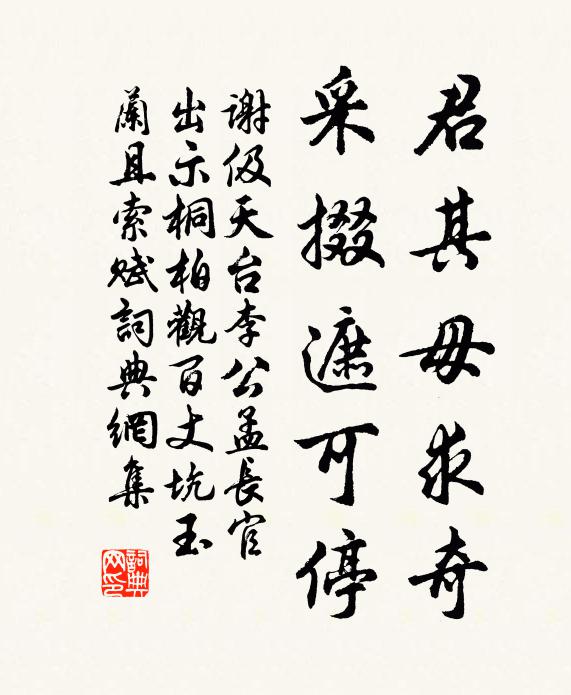 君其毋求奇
采掇遮可停
谢伋天台李公孟長官
出示桐柏觀百丈坑玉
蘭且索赋詞典網集
詞典
网印